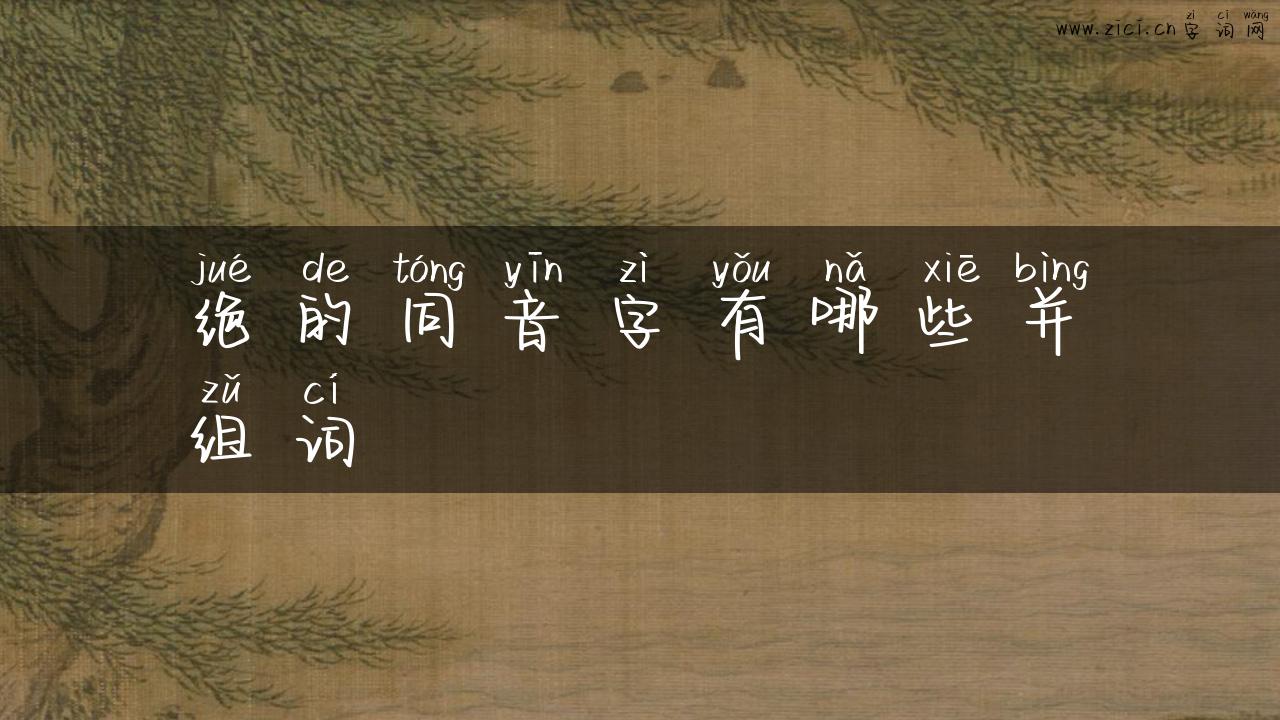 zì cí wǎng
www.zici.cn 字词网
jué de tóng yīn zì yǒu nǎ xiē bìng
绝的同音字有哪些并
zǔ cí
组词